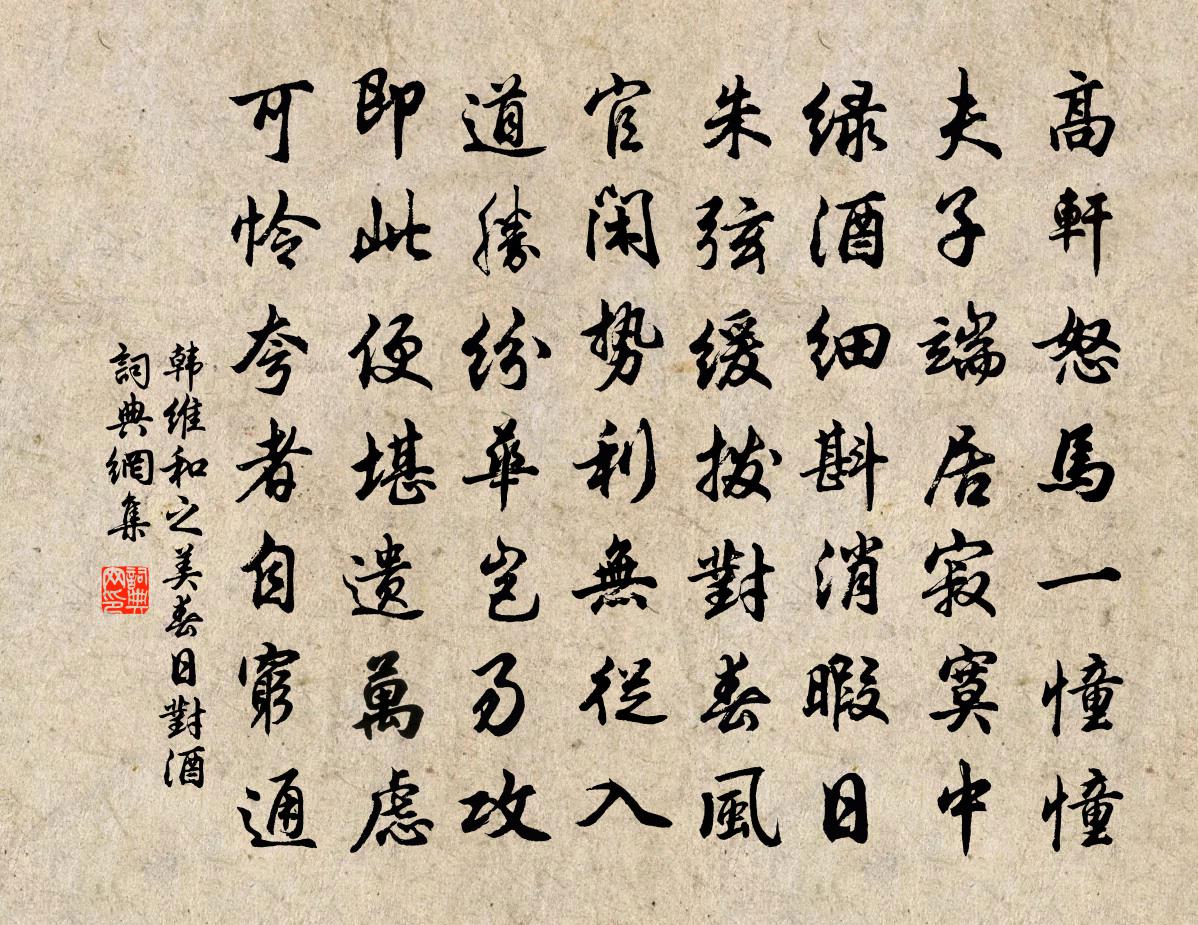 高軒怒馬一憧憧
夫子端居寂寞中
緑酒細斟消暇日
朱弦緩撥對春風
官閑勢利無從入
道勝紛華豈易攻
即此便堪遗萬慮
可怜夸者自窮通
韩維和之美春日對酒
詞典網集
詞典
网印